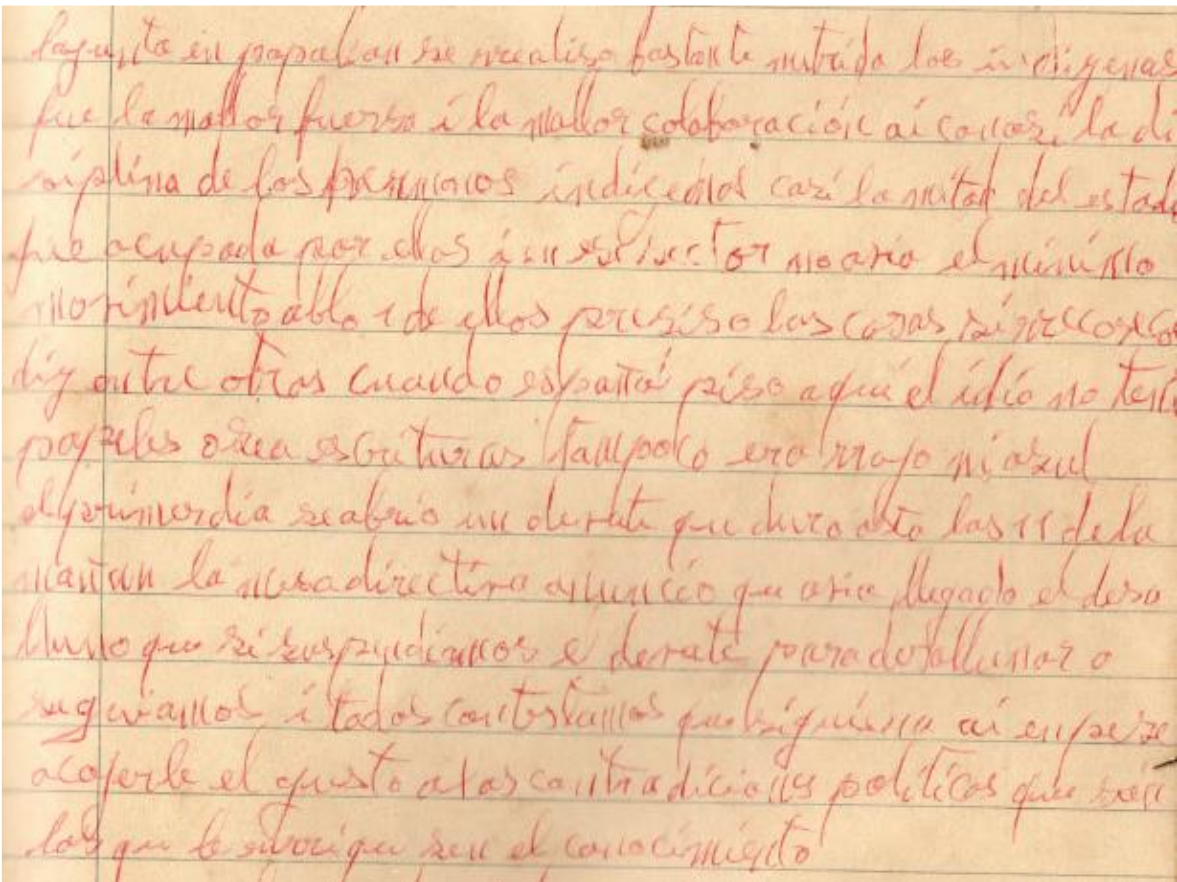 la gunta en popalian se rrealiso bastante nutrida los indigenas
fue la mallor fuersa i la mallor colaboración ai conosi la di
siplina de los paninanos indicenas casi la mitad del estado
fue acupada por ellos i en su sector no avia el minimo
movimiento ablo de ellos presiso las cosas si rreconosco
dig entre otras cuando España piso aqui el idio no teni
papeles osea escrituras tampoco era rrojo ni asul
el primer dia se abrio un devate que duro asta las 11 de la
mañan la mesa directiva anuncio que avia llegado el desa
lluno que si suspendiamos el devate para desallunar o
segiamos i todos contestamos que siguiera ai enpese
a cojerle el gusto a las contradiciones politicas que son
las que le enrriquesen el conocimiento